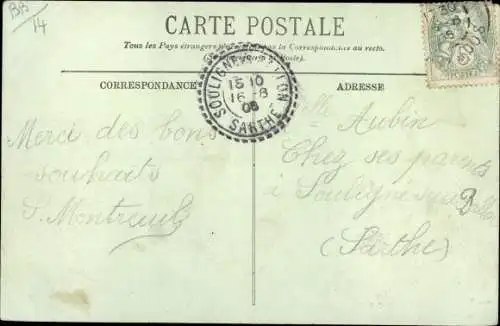 BB
14
CARTE POSTALE
Tous les Pays étrangers n'acceptent pas la Correspondance au recto.
CORRESPONDANCE
ADRESSE
SOULIGNÉ-S-BALLON
15 10
16-8
08
SARTHE
Merci des bons
souhaits
S. Montreuil
Mlle Aubin
Chez ses parents
à Souligné sous Ballon
(Sarthe)